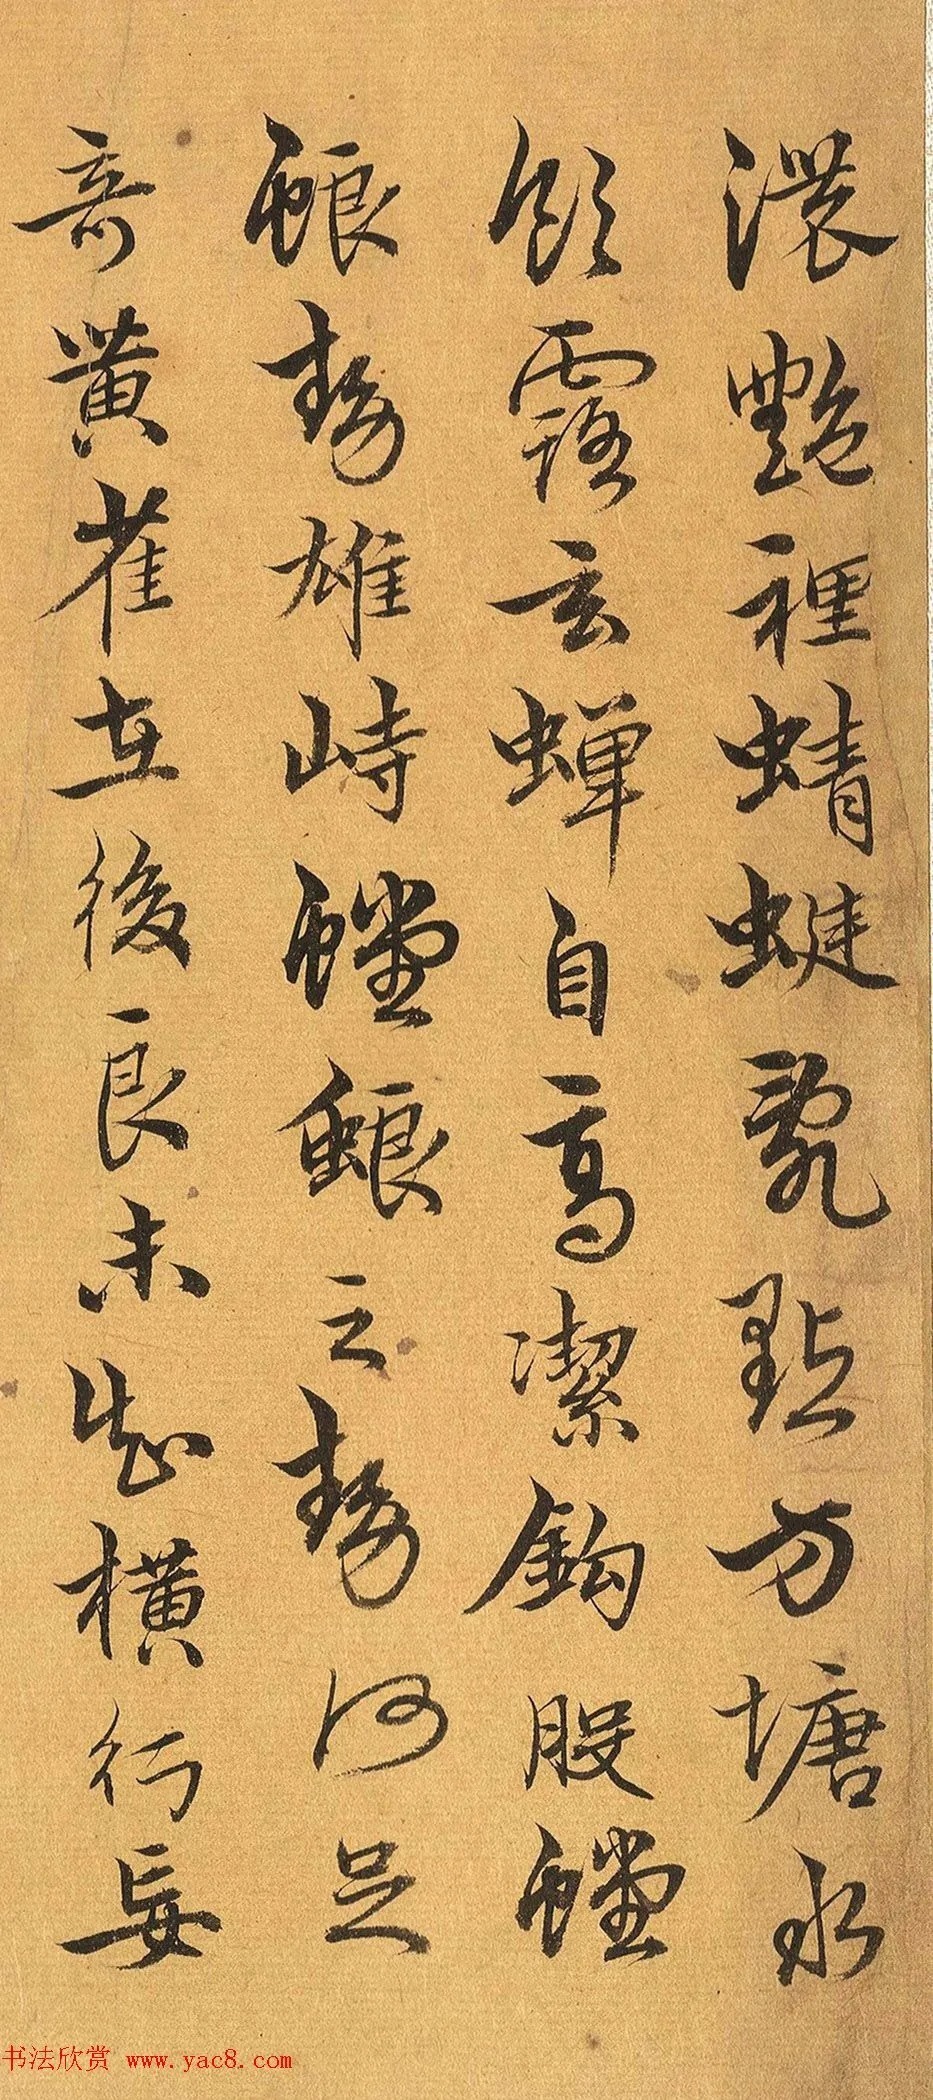 濃艷裡蜻蜓亂點方塘水
飲露玄蟬自高潔鈎股螳
螂勢雄峙螳螂之勢何足
奇黃雀在後良未知橫行妄
书法欣赏 www.yac8.com